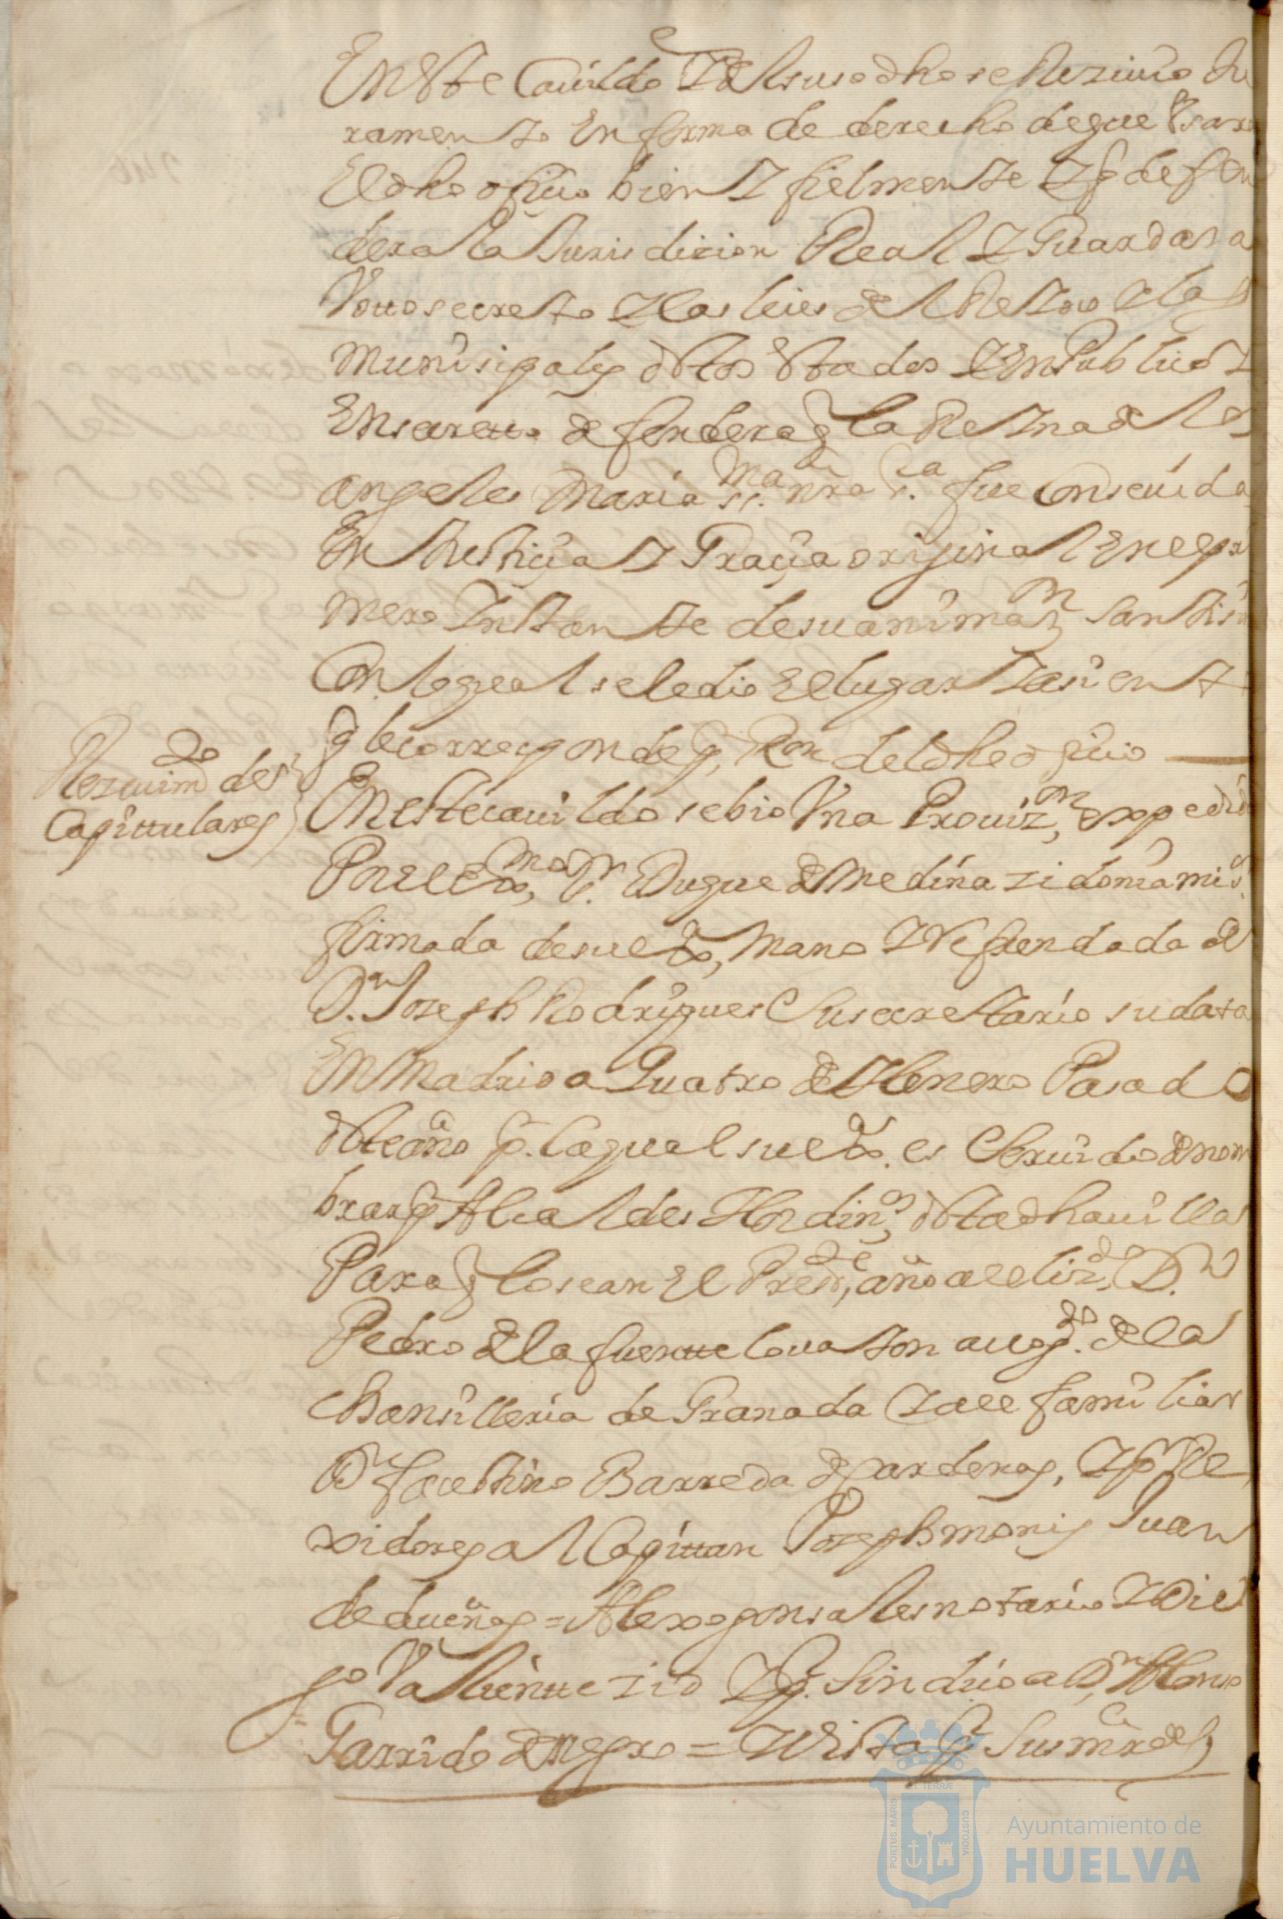 En este Cauildo Y del susodho se Rezivio Ju
ramento En forma de derecho de que Usara
El dho ofiçio bien Y fielmente Y q defen
dera la Jurisdizion Real Y Guardara
Votto secreto Y las leies del Reyno Y las
Munisipales destos estados Y en Publico Y
En secretto defendera q la Reyna de los
angeles Maria SSma nra Sa fue Conseuida
En Justiçia Y Graçia original En el pri
mero Ynstante de su animazn santisi
Con lo qual se le dio El lugar Y asiento
q le corresponde pr Ron del dho ofiçio
Rezeuimdo de
Capittulares
En este cauildo se bio Vna Prouizn, expedida
Por el Exmo Sr Duque de Medina zidonia mi sr
firmada de su exa, Mano Y Refrendada de
Dn Joseph Rodrigues Su secretario su data
En Madrid a Quatro de Henero Pasado
deste año pr la qual su exa. es Seruido de nom
brar pr Alcaldes Hordinos, desta dha uilla
Para q lo sean El Presde, año a el lizdo, Dn
Pedro de la fuentte Louaton auogdo. de la
Chansilleria de Granada Y a el familiar
Dn faustino Barreda de Cardenas, Y pr Re
xidores a l Capittan Joseph monis Juan
de dueñas = Alexo gonsales notario Y Die
go Valientte zid Y pr Sindico a Dn, Alonso
Garrido de Negro = Y Vista pr Sus mrdes
PORTUS MARIS
ET TERRAE
CUSTODIA
Ayuntamiento de
HUELVA